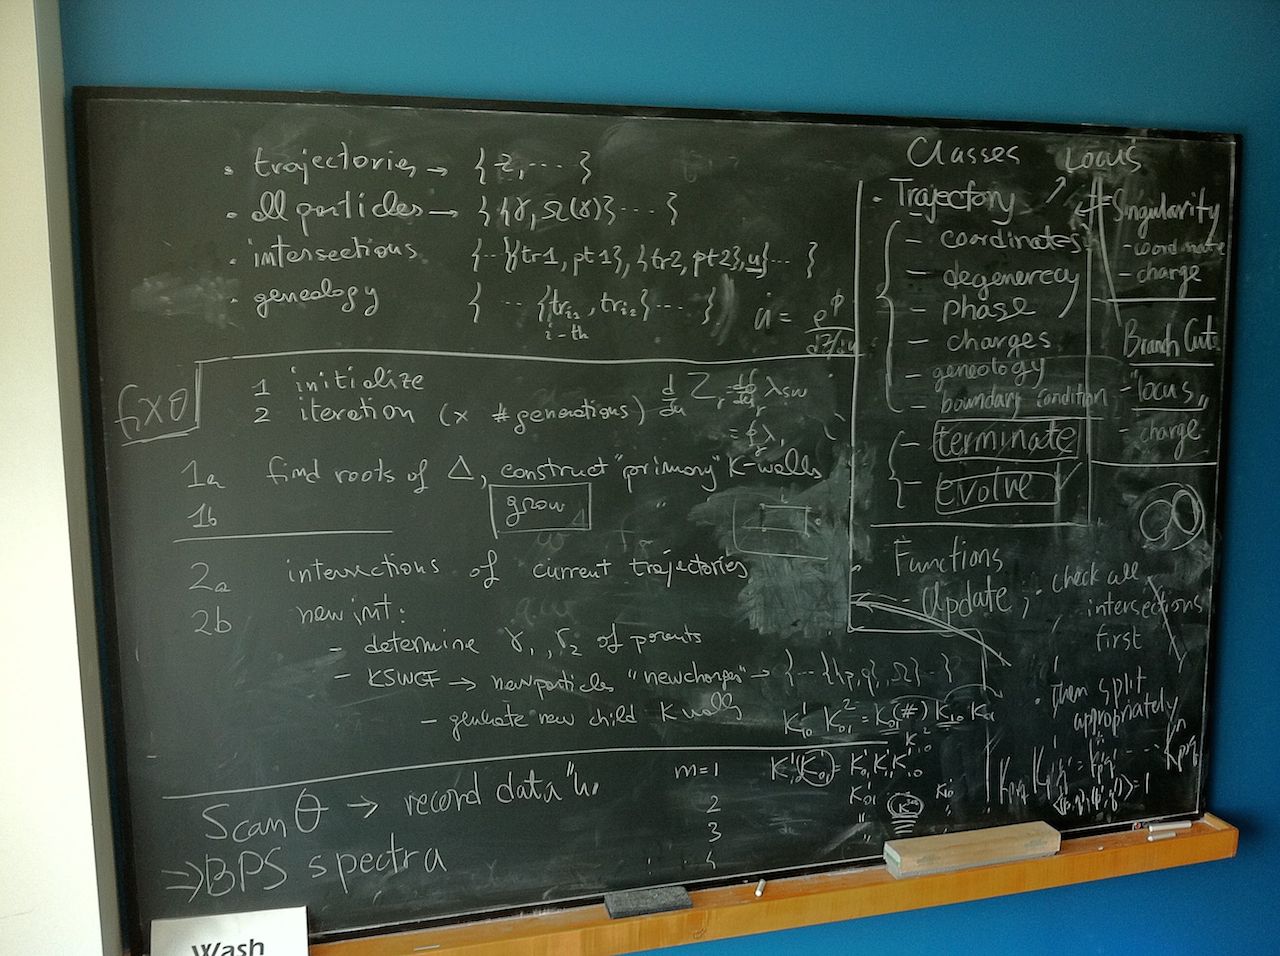 • trajectories → { z, ···· }
• all particles → { {γ, Ω(γ)} ···· }
• intersections { ··{{tr1, pt1}, {tr2, pt2}, u} ··· }
• geneology { ··· {tr_i1, tr_i2} ···· }
i-th
fix θ
1 initialize
2 iteration (x # generations)
1a find roots of Δ, construct "primary" K-walls
1b grow
2a intersections of current trajectories
2b new int:
- determine γ1, γ2 of parents
- KSWCF → new particles "new charges" → { ··· {{p,q}, Ω} ··· }
- generate new child K walls
m=1
2
3
4
Scan θ → record data
⇒ BPS spectra
Classes
• Trajectory
- coordinates
- degenerecy
- phase
- charges
- geneology
- boundary condition
- terminate
- evolve
Locus
Singularity
- coordinate
- charge
Branch Cuts
- "locus"
- charge
Functions
- Update ;
• check all
intersections
first
• then split
appropriately
Wash